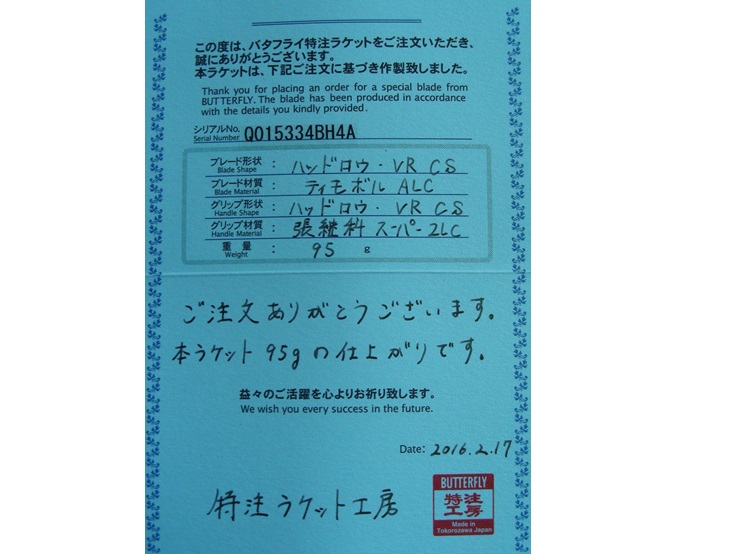 この度は、バタフライ特注ラケットをご注文いただき、
誠にありがとうございます。
本ラケットは、下記ご注文に基づき作製致しました。
Thank you for placing an order for a special blade from
BUTTERFLY. The blade has been produced in accordance
with the details you kindly provided.
シリアルNo. Q015334BH4A
Serial Number
ブレード形状 : ハッドロウ・VR CS
Blade Shape
ブレード材質 : ティモボル ALC
Blade Material
グリップ形状 : ハッドロウ・VR CS
Handle Shape
グリップ材質 : 張継科 スーパーZLC
Handle Material
重量 : 95 g
Weight
ご注文ありがとうございます。
本ラケット 95gの仕上がりです。
益々のご活躍を心よりお祈り致します。
We wish you every success in the future.
Date: 2016.2.17
特注ラケット工房
BUTTERFLY
特注
工房
Made in
Tokorozawa Japan